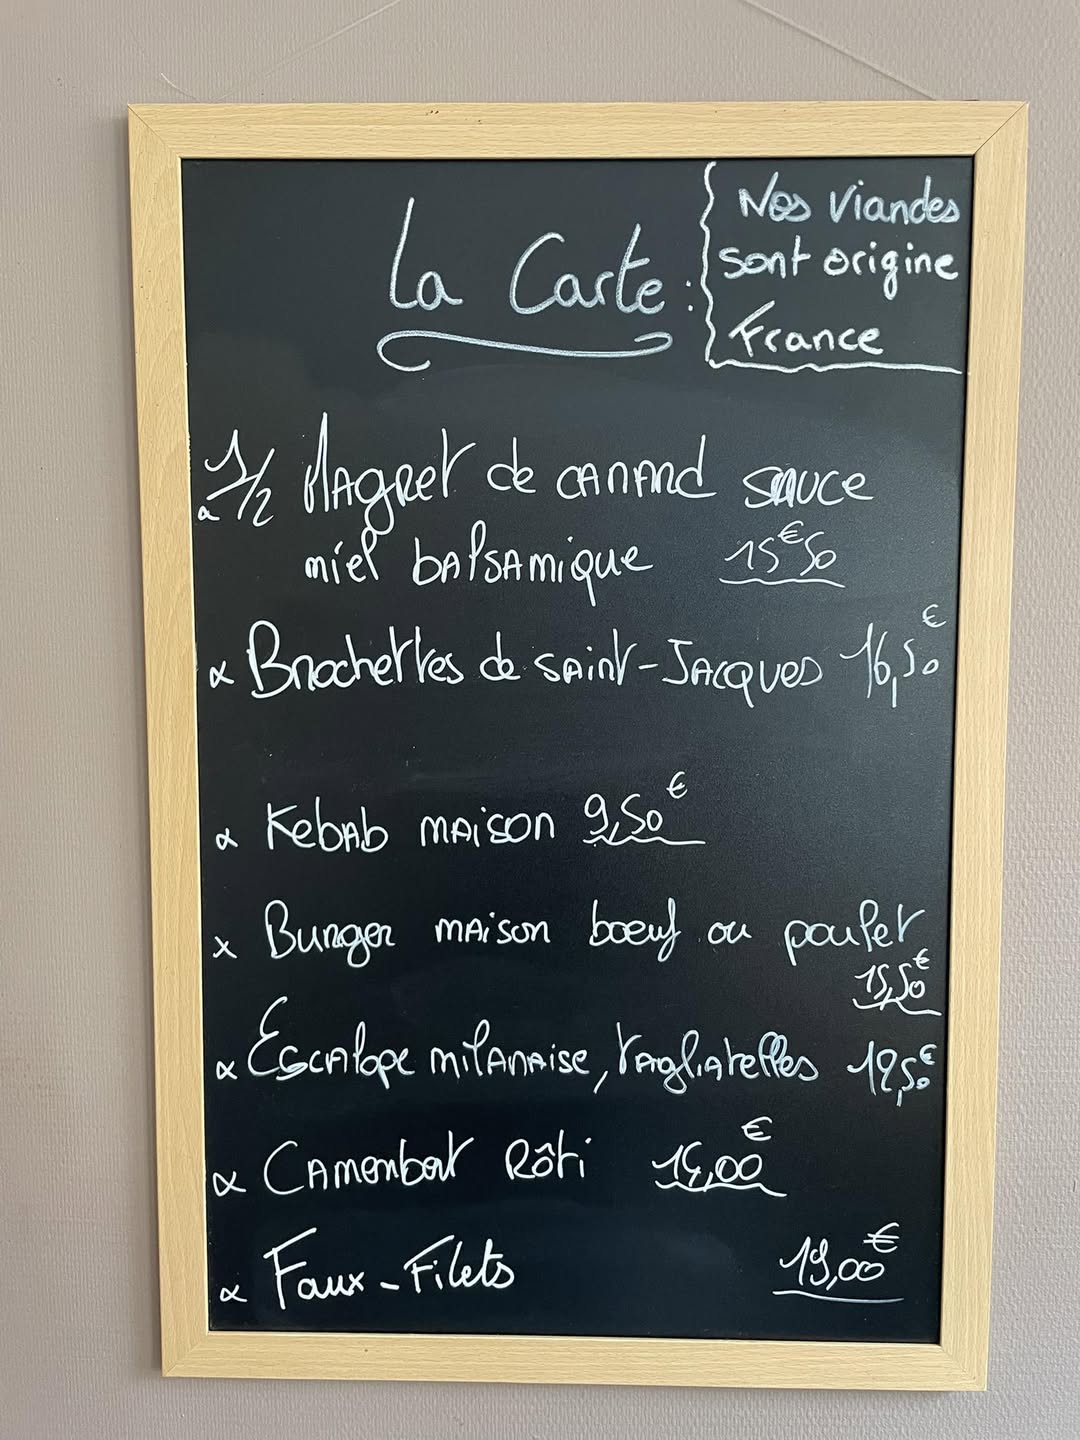 La Carte :
Nos viandes
sont origine
France
1/2 Magret de canard sauce
miel balsamique 15€50
Brochettes de saint-Jacques 16,50€
Kebab maison 9,50€
Burger maison bœuf ou poulet
15,50€
Escalope milanaise, tagliatelles
Camembert Rôti
Faux-Filets 19,00€